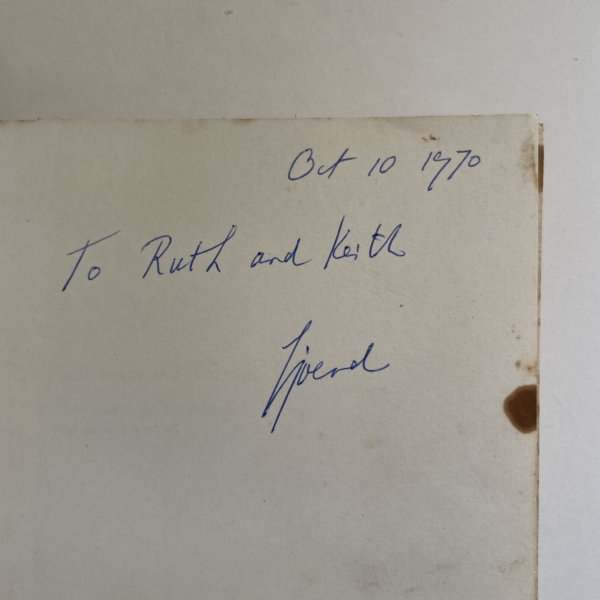 Oct 10 1970
To Ruth and Keith
Sjoerd